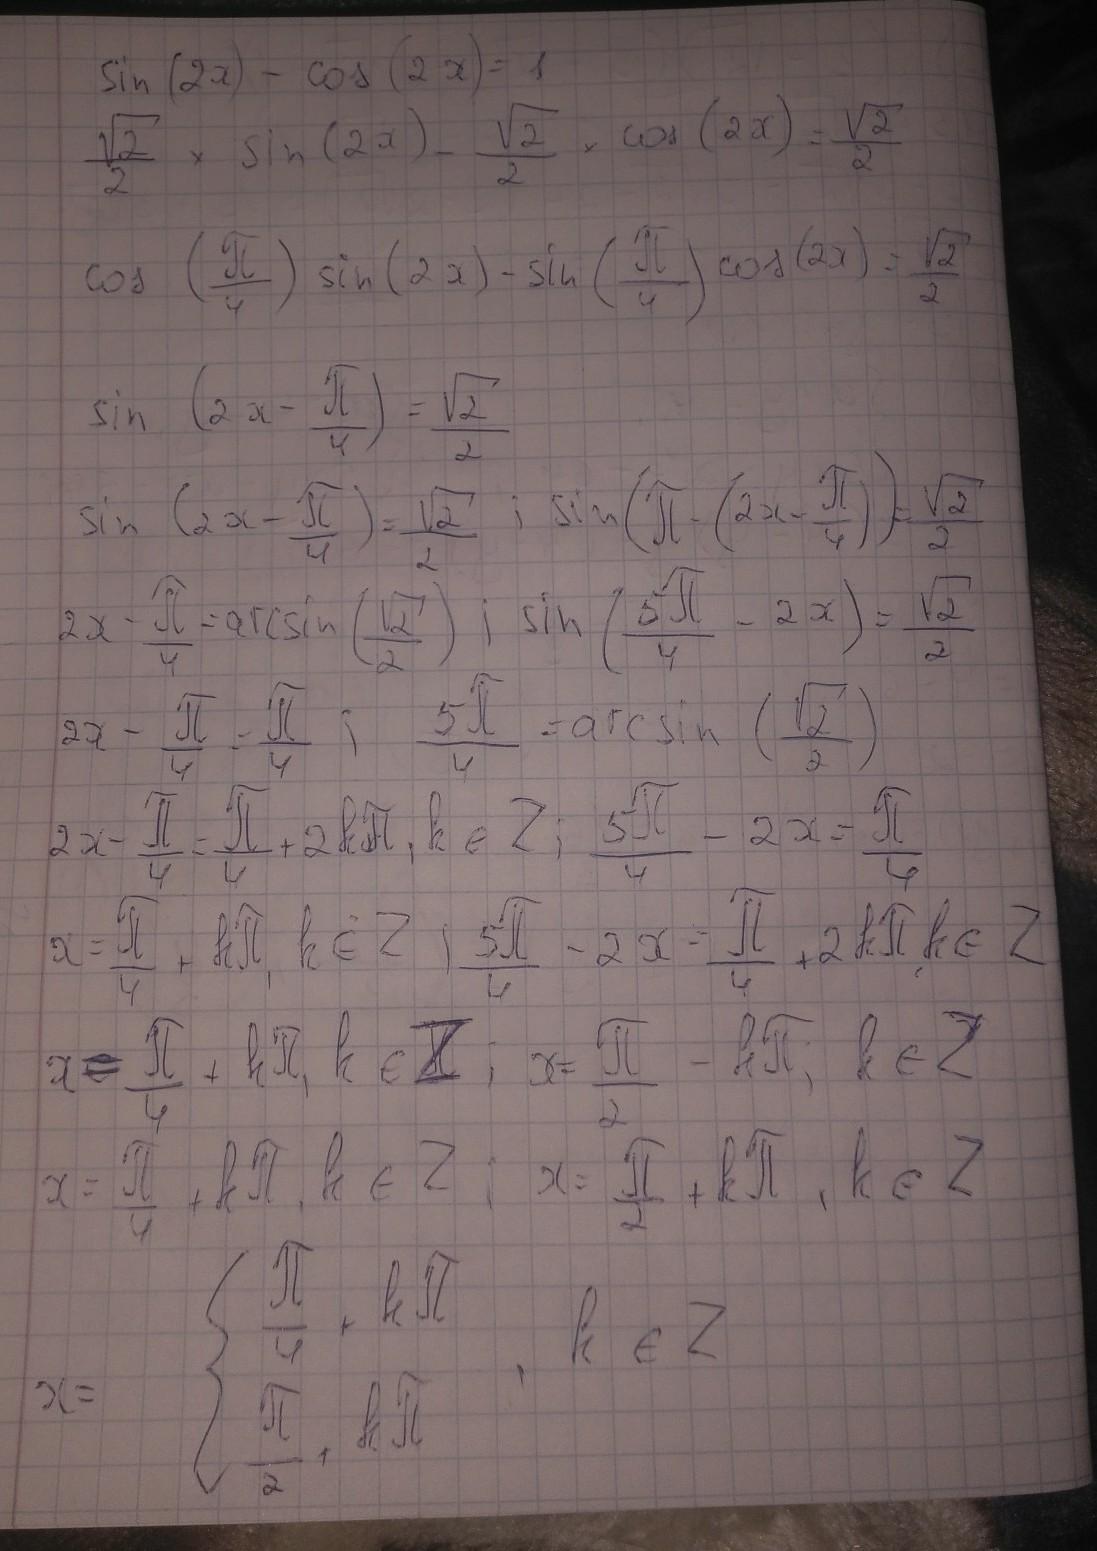 sin(2x) - cos(2x) = 1
√2/2 × sin(2x) - √2/2 × cos(2x) = √2/2
cos(π/4) sin(2x) - sin(π/4) cos(2x) = √2/2
sin(2x - π/4) = √2/2
sin(2x - π/4) = √2/2 ; sin(π - (2x - π/4)) = √2/2
2x - π/4 = arcsin(√2/2) ; sin(5π/4 - 2x) = √2/2
2x - π/4 = π/4 ; 5π/4 = arcsin(√2/2)
2x - π/4 = π/4 + 2kπ, k ∈ Z ; 5π/4 - 2x = π/4
x = π/4 + kπ, k ∈ Z ; 5π/4 - 2x = π/4 + 2kπ, k ∈ Z
x = π/4 + kπ, k ∈ Z ; x = π/2 - kπ, k ∈ Z
x = π/4 + kπ, k ∈ Z ; x = π/2 + kπ, k ∈ Z
x = { π/4 + kπ
π/2 + kπ , k ∈ Z